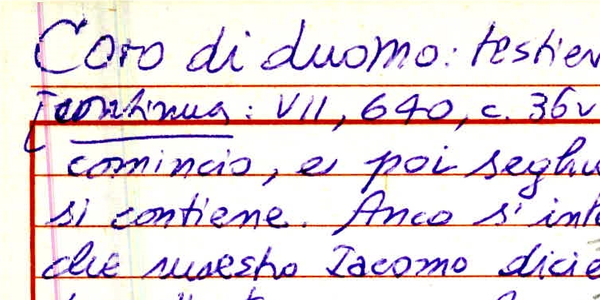 Coro di duomo: testier
[continua: VII, 640, c. 36v
comincio, e poi seghu
si contiene. Anco s'inte
che maestro Iacomo dicie